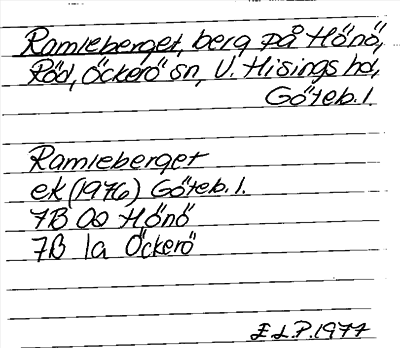 Ramleberget, berg på Hönö,
Röd, Öckerö sn, V. Hisings hd,
Göteb. l.
Ramleberget
ek (1976) Göteb. l.
7B 0a Hönö
7B 1a Öckerö
E L.P. 1977